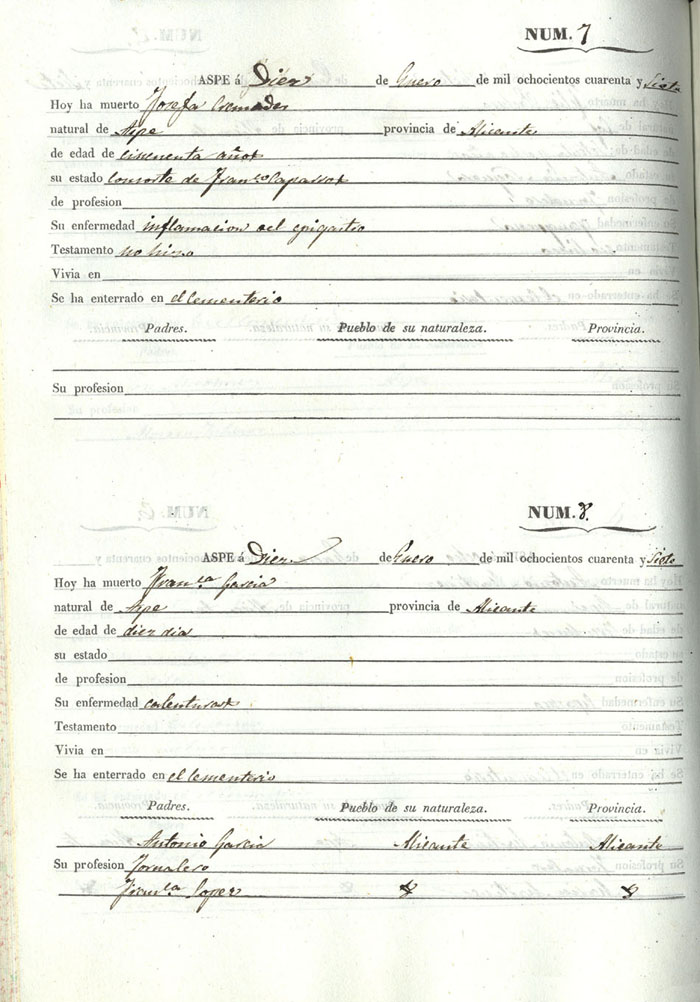 NUM. 7
ASPE á Diez de Enero de mil ochocientos cuarenta y Siete
Hoy ha muerto Josefa Cremades
natural de Aspe provincia de Alicante
de edad de cincuenta años
su estado consorte de Fran.co
de profesion
Su enfermedad inflamacion del epigastio
Testamento no hizo
Vivia en
Se ha enterrado en el Cementerio
Padres. Pueblo de su naturaleza. Provincia.
Su profesion
NUM. 8.
ASPE á Diez de Enero de mil ochocientos cuarenta y Siete
Hoy ha muerto Fran.ca Garcia
natural de Aspe provincia de Alicante
de edad de diez dia
su estado
de profesion
Su enfermedad calenturas
Testamento
Vivia en
Se ha enterrado en el Cementerio
Padres. Pueblo de su naturaleza. Provincia.
Antonio Garcia Alicante Alicante
Su profesion Jornalero
Fran.ca Lopez